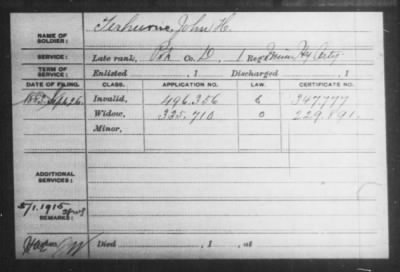 NAME OF SOLDIER: Terhune, John H.
SERVICE: Late rank, Co. D, 1 Reg't Hy Arty
TERM OF SERVICE: Enlisted , 1 Discharged , 1
DATE OF FILING. CLASS. APPLICATION NO. LAW. CERTIFICATE NO.
Invalid, 496.356 347.777
Widow, 335.710 229.891
Minor,
ADDITIONAL SERVICES:
5/1.1915
REMARKS:
Died , 1 , at